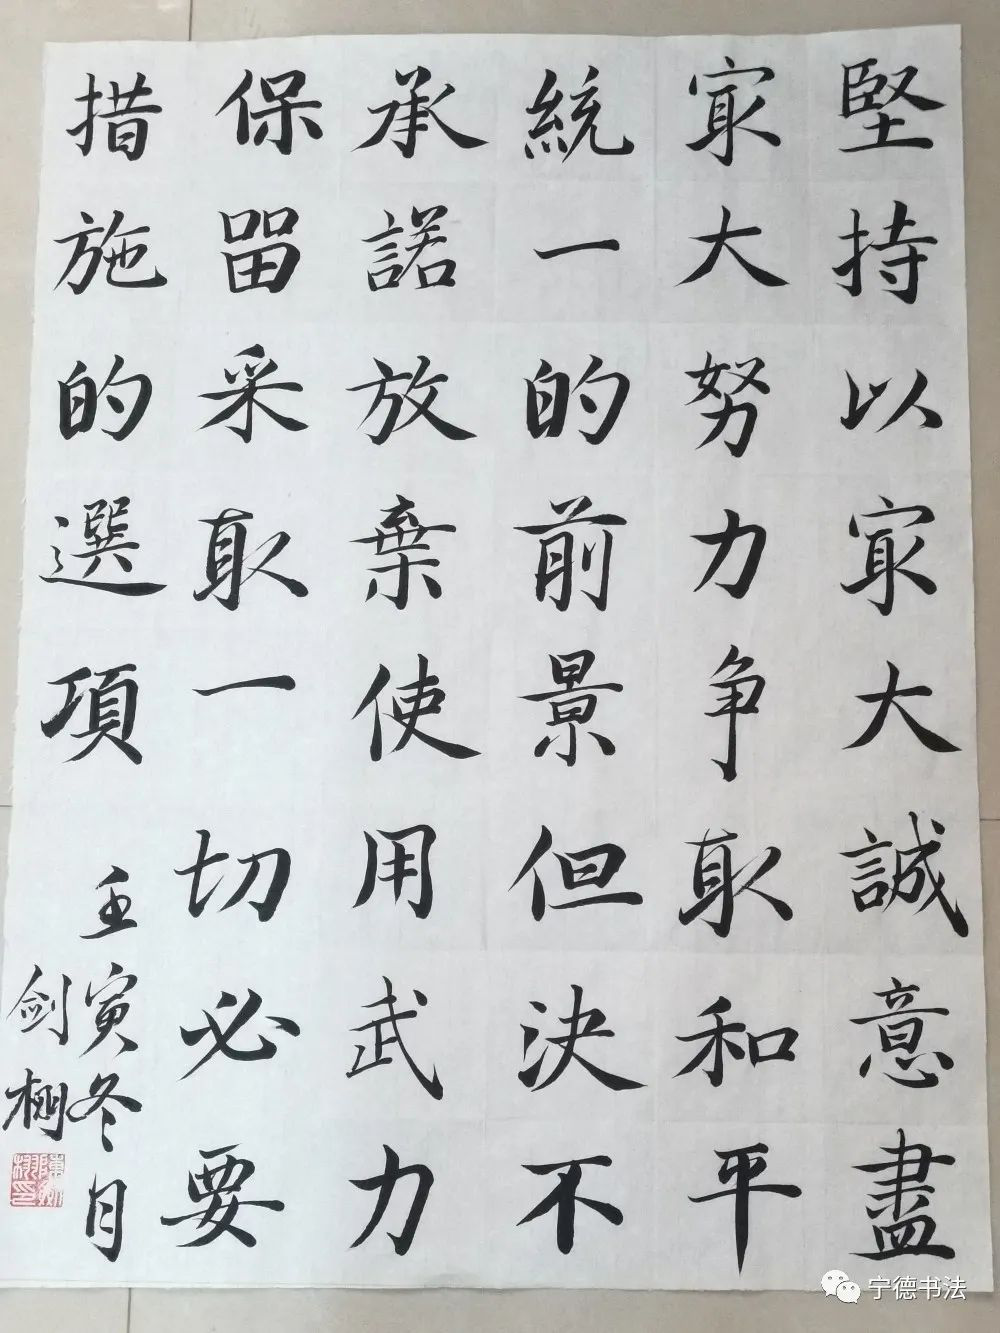 堅持以㝡大誠意盡
㝡大努力争取和平
統一的前景但決不
承諾放棄使用武力
保留采取一切必要
措施的選項
壬寅冬月
剑
宁德书法